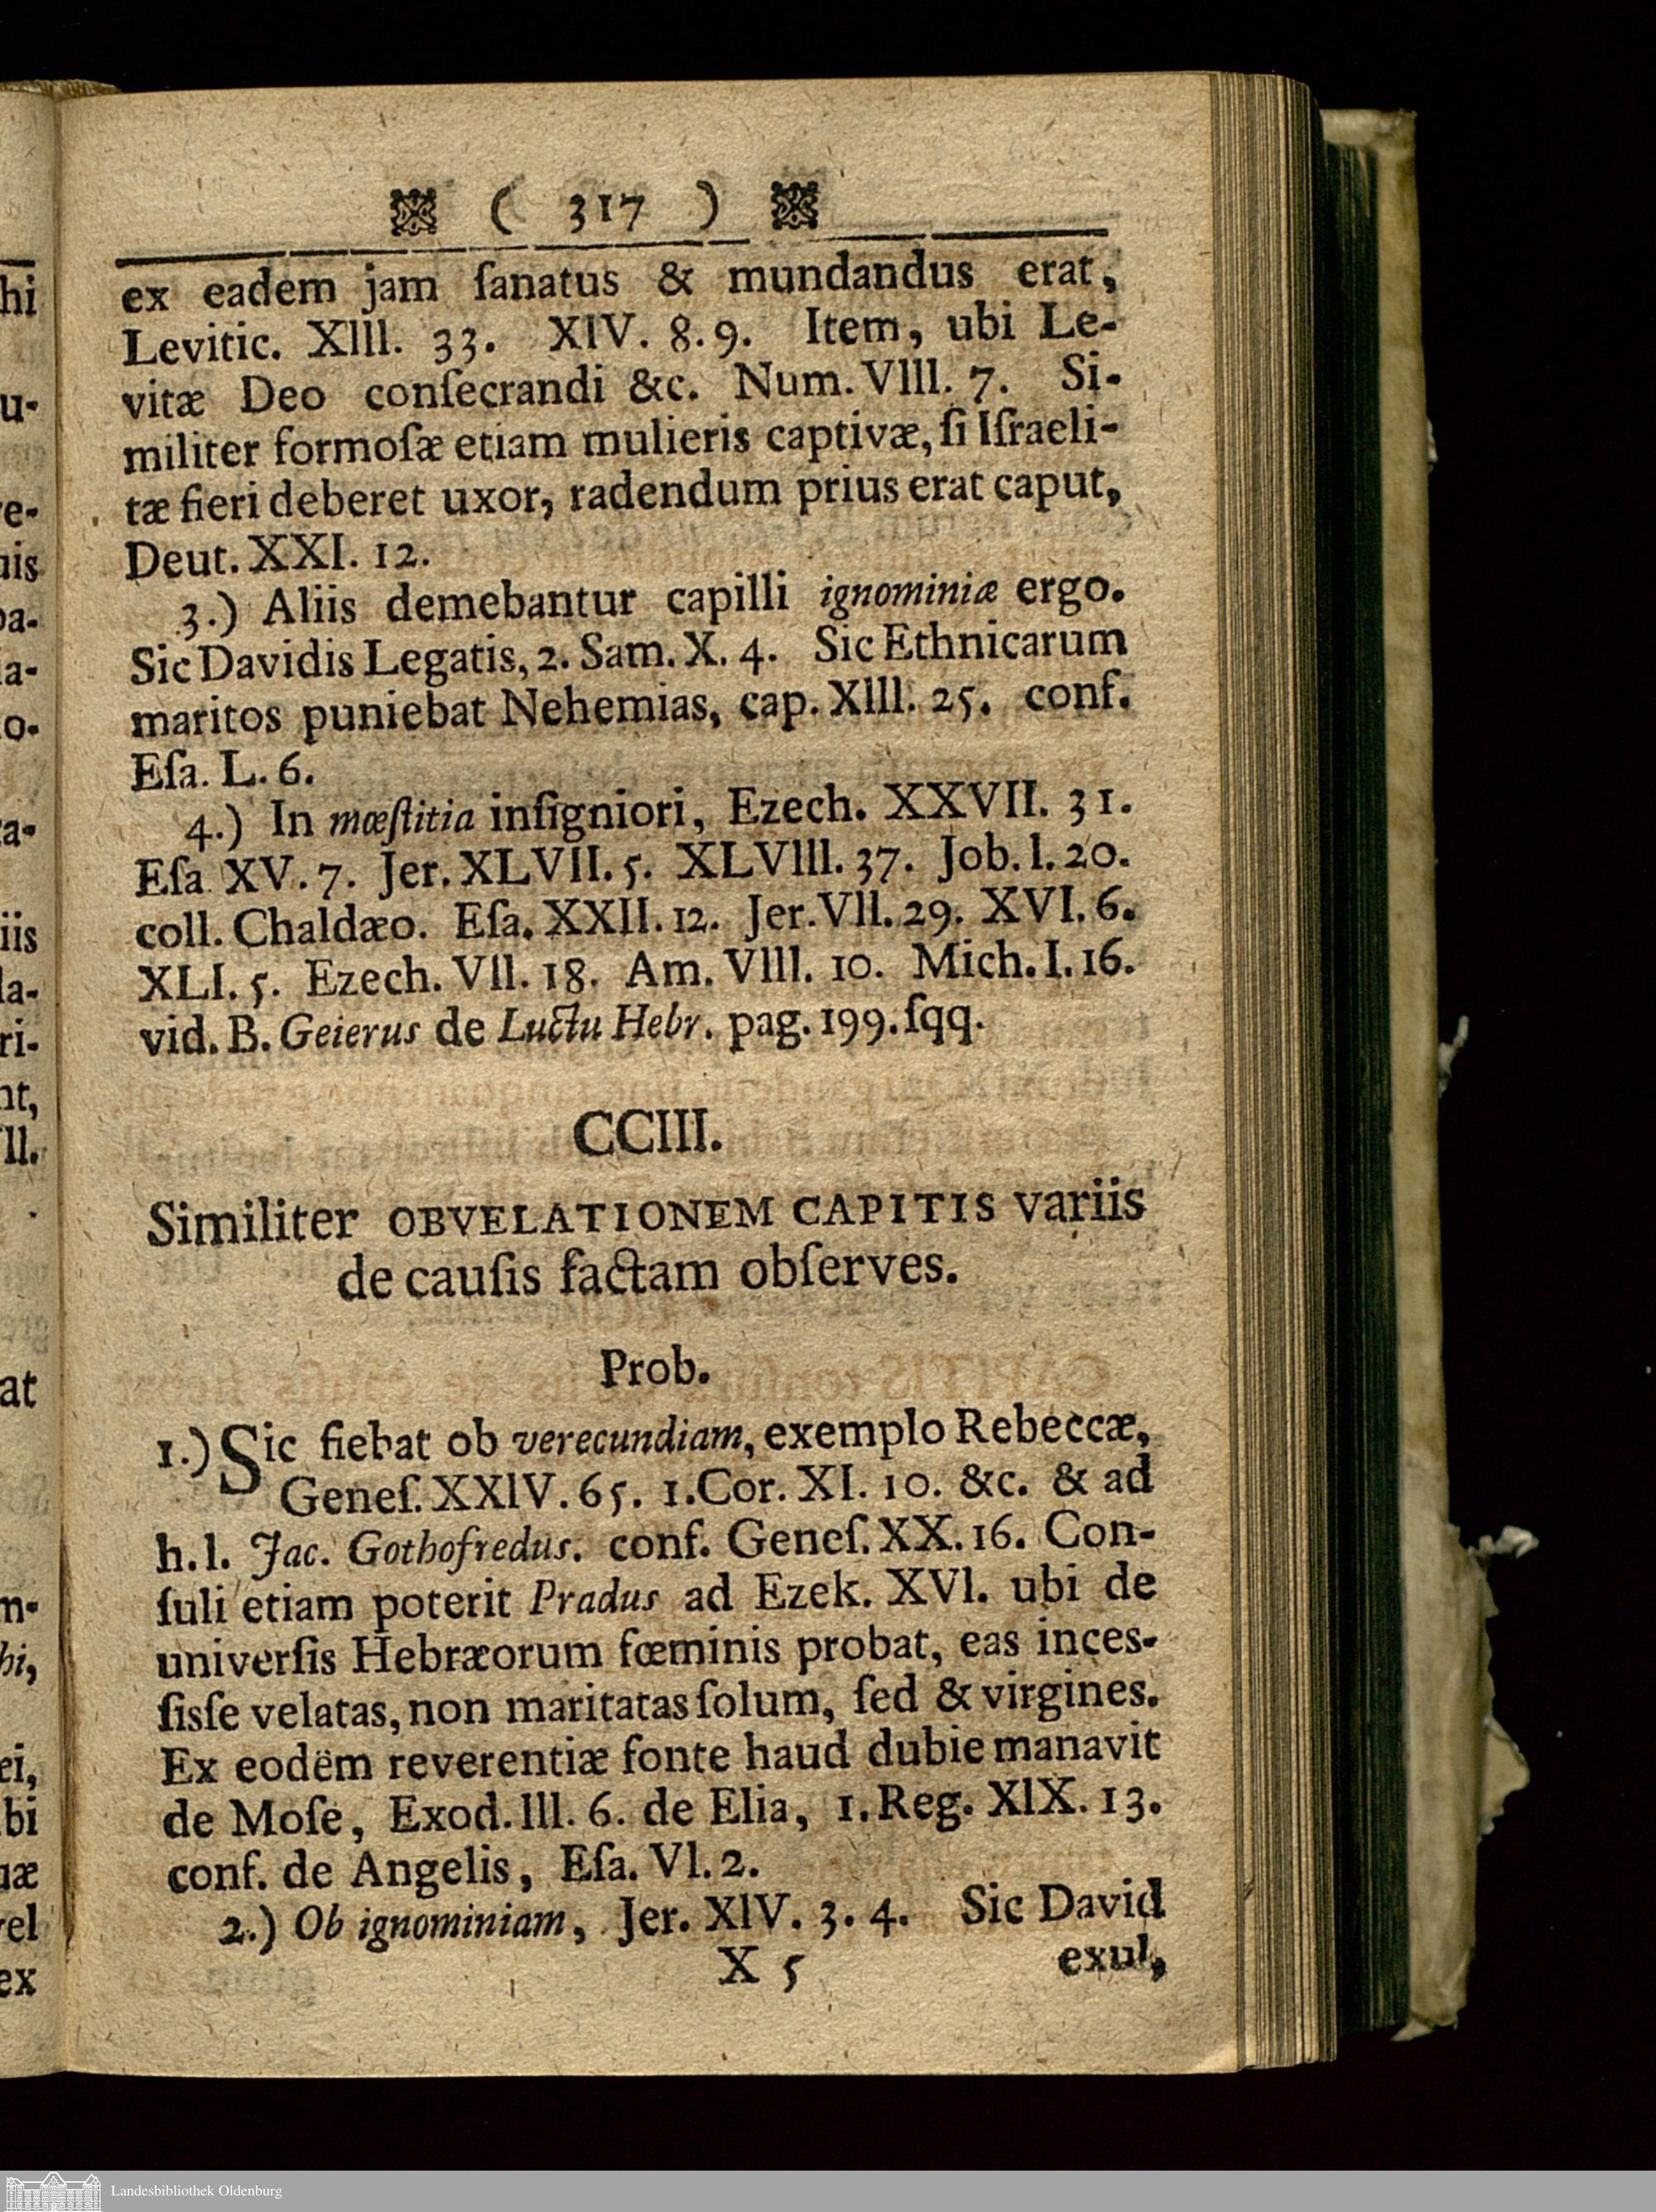 ( 317 )
ex eadem jam ſanatus & mundandus erat,
Levitic. Xlll. 33. XIV. 8. 9. Item, ubi Le-
vitæ Deo conſecrandi &c. Num. Vlll. 7. Si-
militer formoſæ etiam mulieris captivæ, ſi Iſraeli-
tæ fieri deberet uxor, radendum prius erat caput,
Deut. XXI. 12.
3.) Aliis demebantur capilli ignominiæ ergo.
Sic Davidis Legatis, 2. Sam. X. 4. Sic Ethnicarum
maritos puniebat Nehemias, cap. Xlll. 25. conf.
Eſa. L. 6.
4.) In mœſtitia inſigniori, Ezech. XXVII. 31.
Eſa. XV. 7. Jer. XLVII. 5. XLVlll. 37. Job. l. 20.
coll. Chaldæo. Eſa. XXII. 12. Jer. Vll. 29. XVI. 6.
XLI. 5. Ezech. Vll. 18. Am. Vlll. 10. Mich. I. 16.
vid. B. Geierus de Luctu Hebr. pag. 199. ſqq.
CCIII.
Similiter OBVELATIONEM CAPITIS variis
de cauſis factam obſerves.
Prob.
1.) Sic fiebat ob verecundiam, exemplo Rebeccæ,
Geneſ. XXlV. 65. 1. Cor. XI. 10. &c. & ad
h. l. Jac. Gothofredus. conf. Geneſ. XX. 16. Con-
ſuli etiam poterit Pradus ad Ezek. XVl. ubi de
univerſis Hebræorum fœminis probat, eas inces-
ſisſe velatas, non maritatas ſolum, ſed & virgines.
Ex eodem reverentiæ fonte haud dubie manavit
de Moſe, Exod. lll. 6. de Elia, 1. Reg. XlX. 13.
conf. de Angelis, Eſa. Vl. 2.
2.) Ob ignominiam, Jer. XlV. 3. 4. Sic David
X 5 exul,
Landesbibliothek Oldenburg